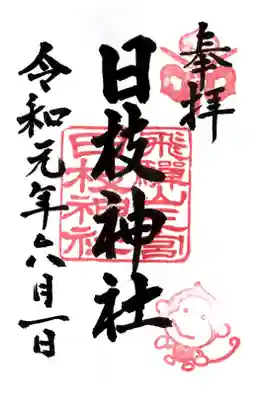 奉拝
日枝神社
飛騨山王宮
日枝神社
令和元年六月一日